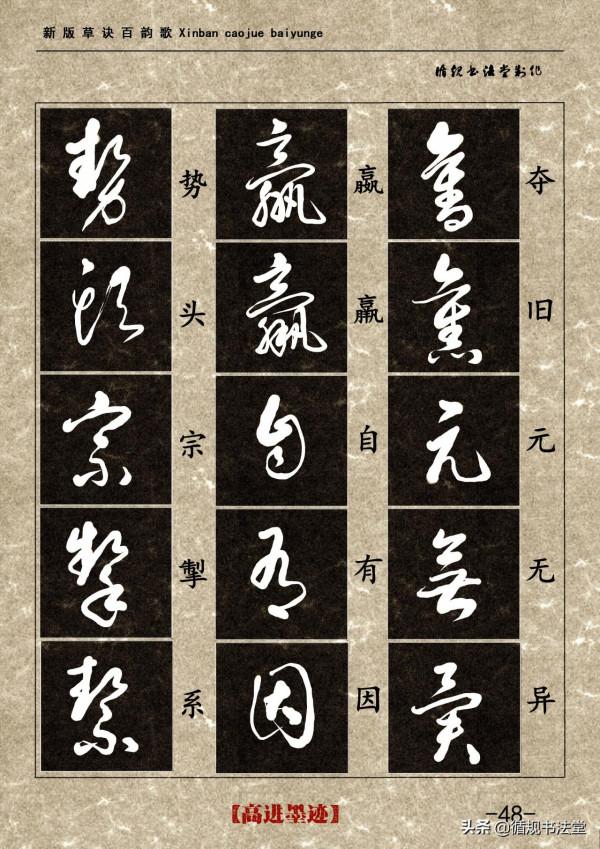 新版草诀百韵歌 Xinban caojue baiyunge
循规书法堂制作
夺旧元无异
嬴羸自有因
势头宗掣系
【高进墨迹】
-48-
头条 @循规书法堂